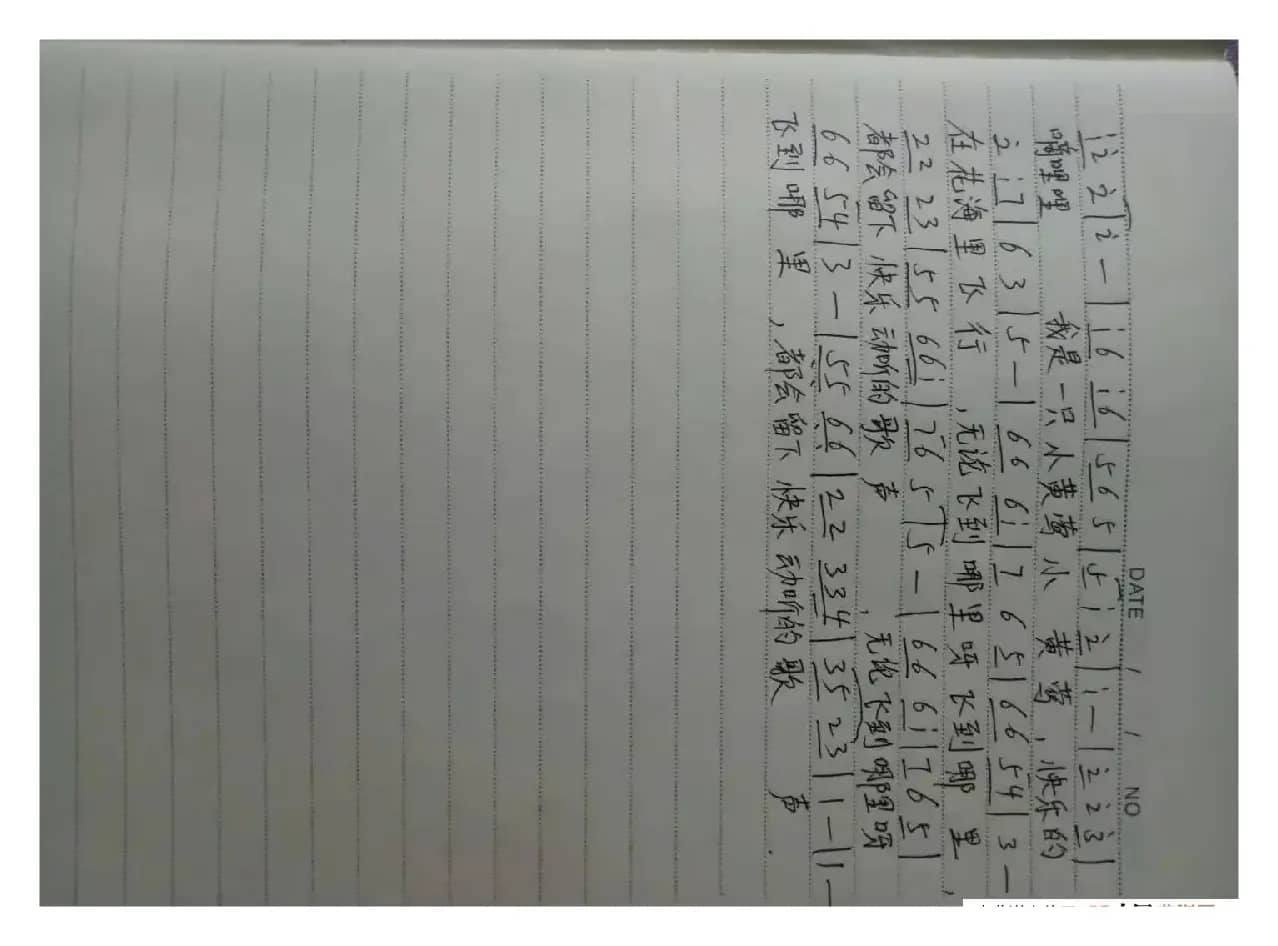 DATE / / NO
i̲ 2̲̇ 2̇ | 2̇ — | i̲ 6̲ i̲ 6̲ | 5̲ 6̲ 5 | 5 i 2̲̇ | i — | 2̲̇ 2̇ 3̲̇ |
嘀哩哩 我是一只小黄莺小黄莺，快乐的
2̇ i̲ 7̲ | 6 3 | 5 — | 6̲ 6̲ 6̲ i̲ | 7̲ 6 5̲ | 6̲ 6̲ 5̲ 4̲ | 3 —
在花海里飞行，无论飞到哪里呀飞到哪里，
2̲ 2̲ 2̲ 3̲ | 5̲ 5̲ 6̲ 6̲ i̲ | 7̲ 6̲ 5 | 5 — | 6̲ 6̲ 6̲ i̲ | 7̲ 6 5̲ |
都会留下快乐动听的歌声，无论飞到哪里呀
6̲ 6̲ 5̲ 4̲ | 3 — | 5̲̣ 5̲̣ 6̲̣ 6̲̣ | 2̲ 2̲ 3̲ 3̲ 4̲ | 3̲ 5̲ 2̲ 3̲ | 1 — | 1 —
飞到哪里，都会留下快乐动听的歌声.